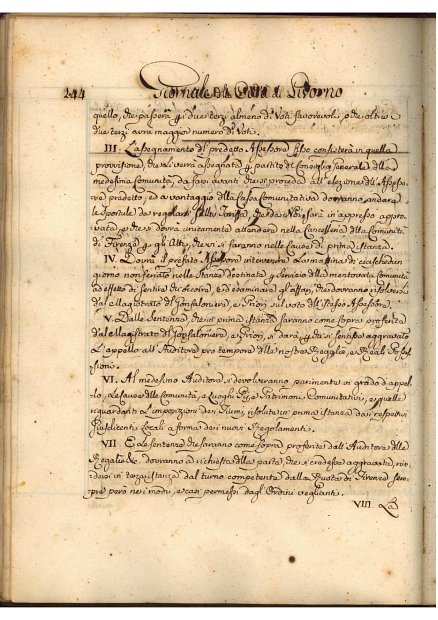 244 Giornale della Città di Livorno
quello, che passerà p. i due terzi almeno di Voti favorevoli, e che oltre i
due terzi avrà maggior numero di Voti.
III. L'assegnamento del predetto Assessore fisso consisterà in quella
provvisione, che li verrà assegnata p. partito del Consiglio Generale della
medesima Comunità, da farsi avanti che si proceda all'elezione dell'Assesso-
re predetto, ed a vantaggio della Cassa Comunitativa dovranno andare
le Sportule da regolarsi sulla Tariffa, che da Noi sarà in appresso appro-
vata, e che si dovrà unitamente attendere nella Cancelleria della Comunità
di Firenze p. gli Atti, che vi si faranno nelle Cause di prima istanza.
IV. Dovrà il prefato Assessore intervenire la mattina di ciaschedun
giorno non feriato nelle Stanze destinate p. servizio della mentovata Comunità
ad effetto di sentire chi occorra, ed esaminare gli affari, che dovranno risolversi
dal Magistrato de' Gonfaloniere, e Priori sul voto dell'istesso Assessore.
V. Dalle Sentenze, che in prima istanza saranno come sopra proferite
dal Magistrato di Gonfaloniere, e Priori, si darà p. chi si sentisse aggravato
L'appello all'Auditore pro tempore delle nostre Regalie, e Reali Posses-
sioni.
VI. Al medesimo Auditore si devolveranno parimente in grado d'appel-
lo, le Cause delle Comunità, e Luoghi Pij, e Patrimoni Comunitativi, e quelle
riguardanti L'imposizione dei Fiumi, risolute in prima istanza dai respettivi
Giusdicenti Locali a forma dei nuovi Regolamenti.
VII. E le sentenze che saranno come sopra proferite dall'Auditore delle
Regalie &c. dovranno a richiesta della parte, che si credesse aggravata, rive-
dersi in terza istanza dal turno competente della Ruota di Firenze sem-
pre però nei modi, e casi permessi dagli Ordini veglianti.
VIII La